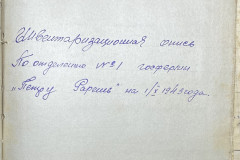 Инвентаризационная опись
По отделению №1 госфермы
„Петру Рареш" на 1/X 1949 года.